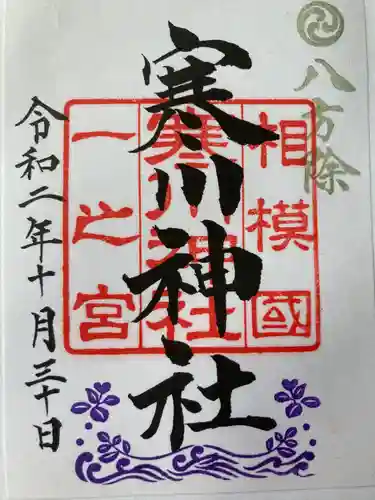 八方除
相模國
寒川神社
一之宮
寒川神社
令和二年十月三十日